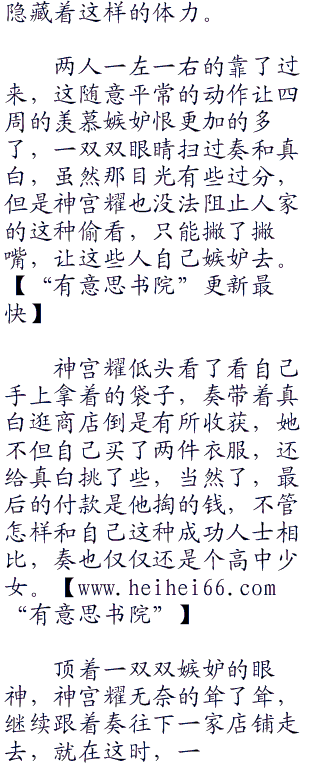 隐藏着这样的体力。
两人一左一右的靠了过
来，这随意平常的动作让四
周的羡慕嫉妒恨更加的多
了，一双双眼睛扫过奏和真
白，虽然那目光有些过分，
但是神宫耀也没法阻止人家
的这种偷看，只能撇了撇
嘴，让这些人自己嫉妒去。
【“有意思书院”更新最
快】
神宫耀低头看了看自己
手上拿着的袋子，奏带着真
白逛商店倒是有所收获，她
不但自己买了两件衣服，还
给真白挑了些，当然了，最
后的付款是他掏的钱，不管
怎样和自己这种成功人士相
比，奏也仅仅还是个高中少
女。【www.heihei66.com
“有意思书院”】
顶着一双双嫉妒的眼
神，神宫耀无奈的耸了耸，
继续跟着奏往下一家店铺走
去，就在这时，一